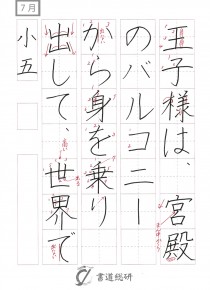 7月
王子様は、宮殿
のバルコニー
から身を乗り
出して、世界で
小五
書道総研